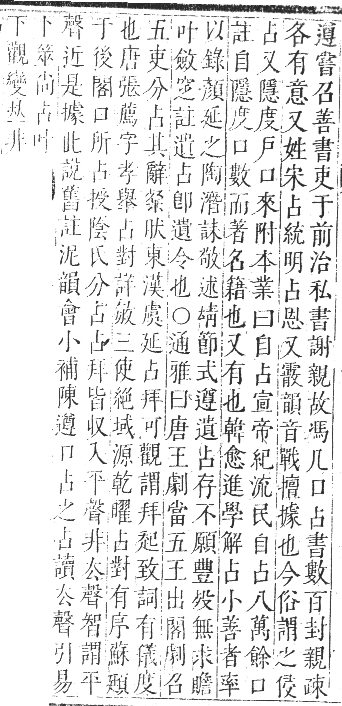 遵嘗召善書吏于前治私書謝親故馮几口占書數百封親疎
各有意又姓宋占統明占恩又霰韻音戰擅據也今俗謂之侵
占又隱度戶口來附本業曰自占宣帝紀流民自占八萬餘口
註自隱度口數而著名籍也又有也韓愈進學解占小善者率
以錄顏延之陶潛誄敬述靖節式遵遺占存不願豐歿無求贍
叶斂窆註遺占卽遺令也○通雅曰唐王劇當五王出閣劇召
五吏分占其辭粲肰東漢虞延占拜可觀謂拜起致詞有儀度
也唐張薦字孝舉占對詳敏三使絶域源乾曜占對有序蘇頲
于後閣口所占授陰氏分占占拜皆収入平聲非厺聲智謂平
聲近是據此說舊註泥韻會小補陳遵口占之占讀厺聲引易
卜筮尚占叶
下觀變𠛬井